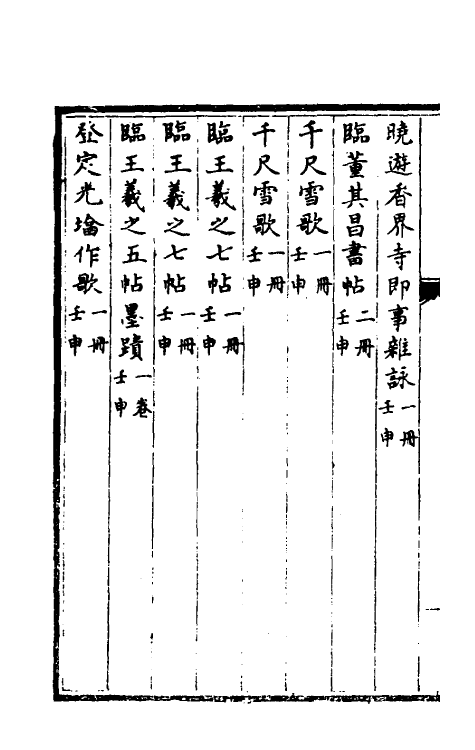 曉遊香界寺即事雜詠一冊壬申
臨董其昌書帖二冊壬申
千尺雪歌一冊壬申
千尺雪歌一冊壬申
臨王羲之七帖一冊壬申
臨王羲之七帖一冊壬申
臨王羲之五帖墨蹟一卷壬申
登定光㙮作歌一冊壬申